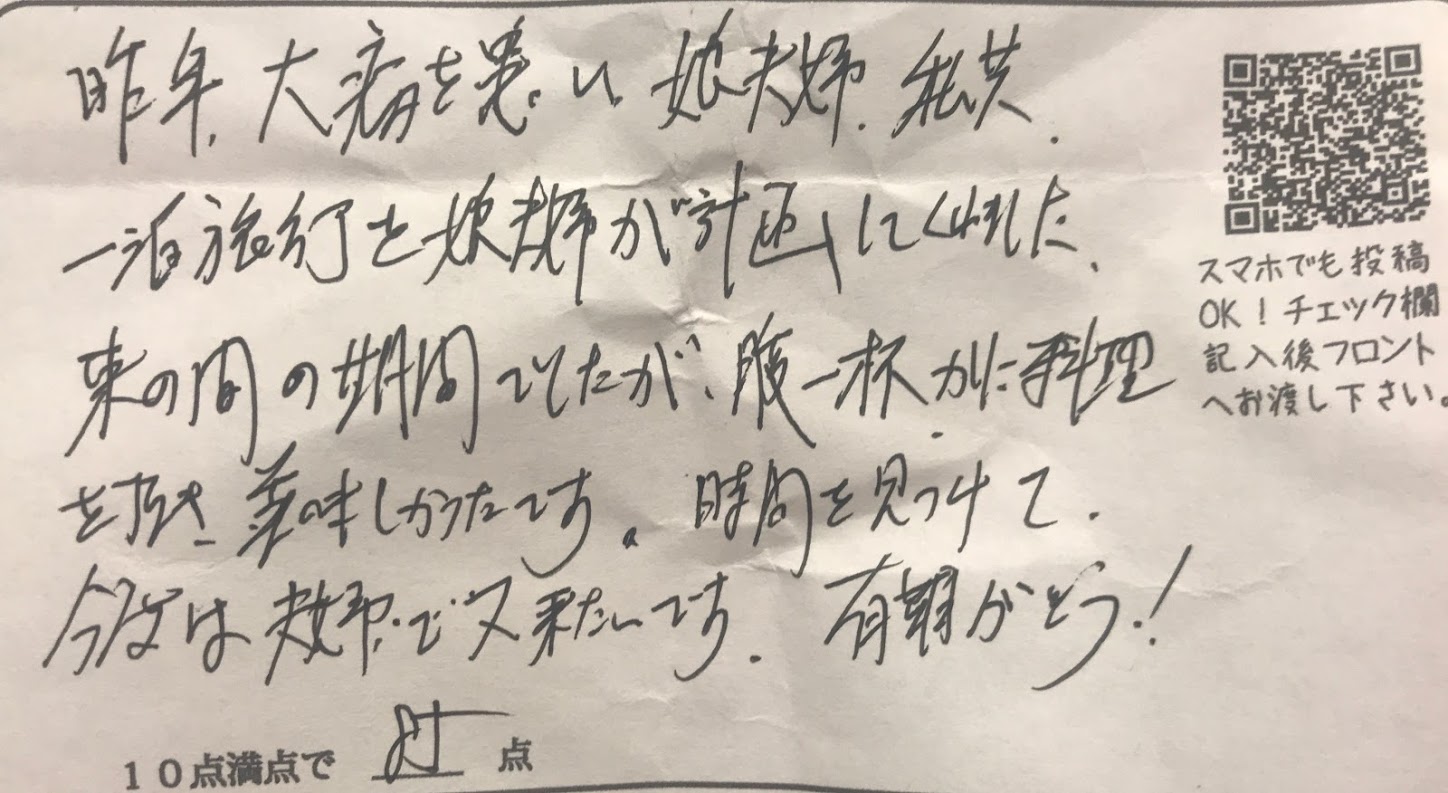 昨年、大病を患い、娘夫婦、私共、
一泊旅行を娘夫婦が計画してくれた、
束の間の期間でしたが、腹一杯、かに料理
を頂き、美味しかったです。時間を見つけて、
今度は夫婦で又来たいです。有難がとう!
10点満点で 点
スマホでも投稿
OK!チェック欄
記入後フロント
へお渡し下さい。